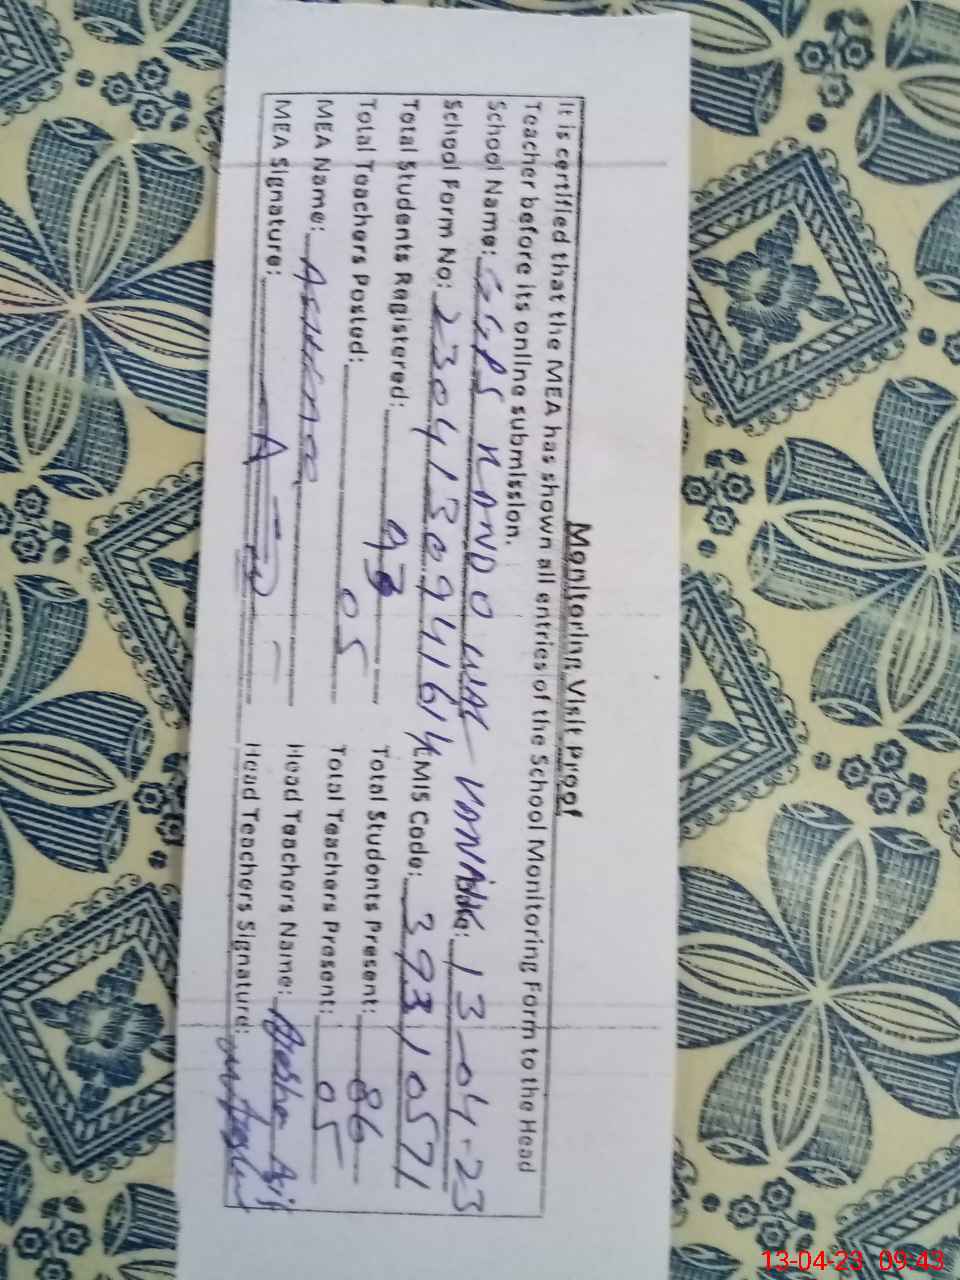 Monitoring Visit Proof
It is certified that the MEA has shown all entries of the School Monitoring Form to the Head
Teacher before its online submission.
School Name: GGPS NANDO WAL Date: 13-04-23
School Form No: 23041309416 EMIS Code: 39310571
Total Students Registered: 93 Total Students Present: 86
Total Teachers Posted: 05 Total Teachers Present: 05
MEA Name: Head Teachers Name: Ayesha Asif
MEA Signature: Head Teachers Signature:
13-04-23 09:43